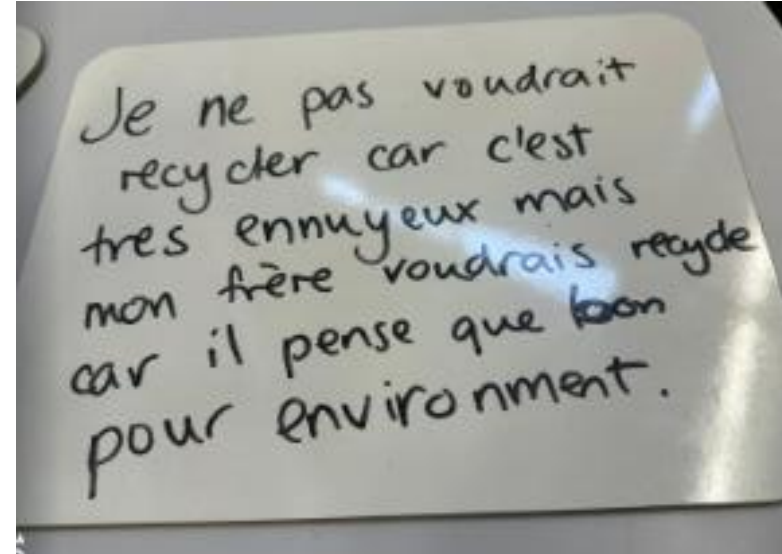 Je ne pas voudrait
recycler car c'est
tres ennuyeux mais
mon frère voudrais recycle
car il pense que bon
pour environment.